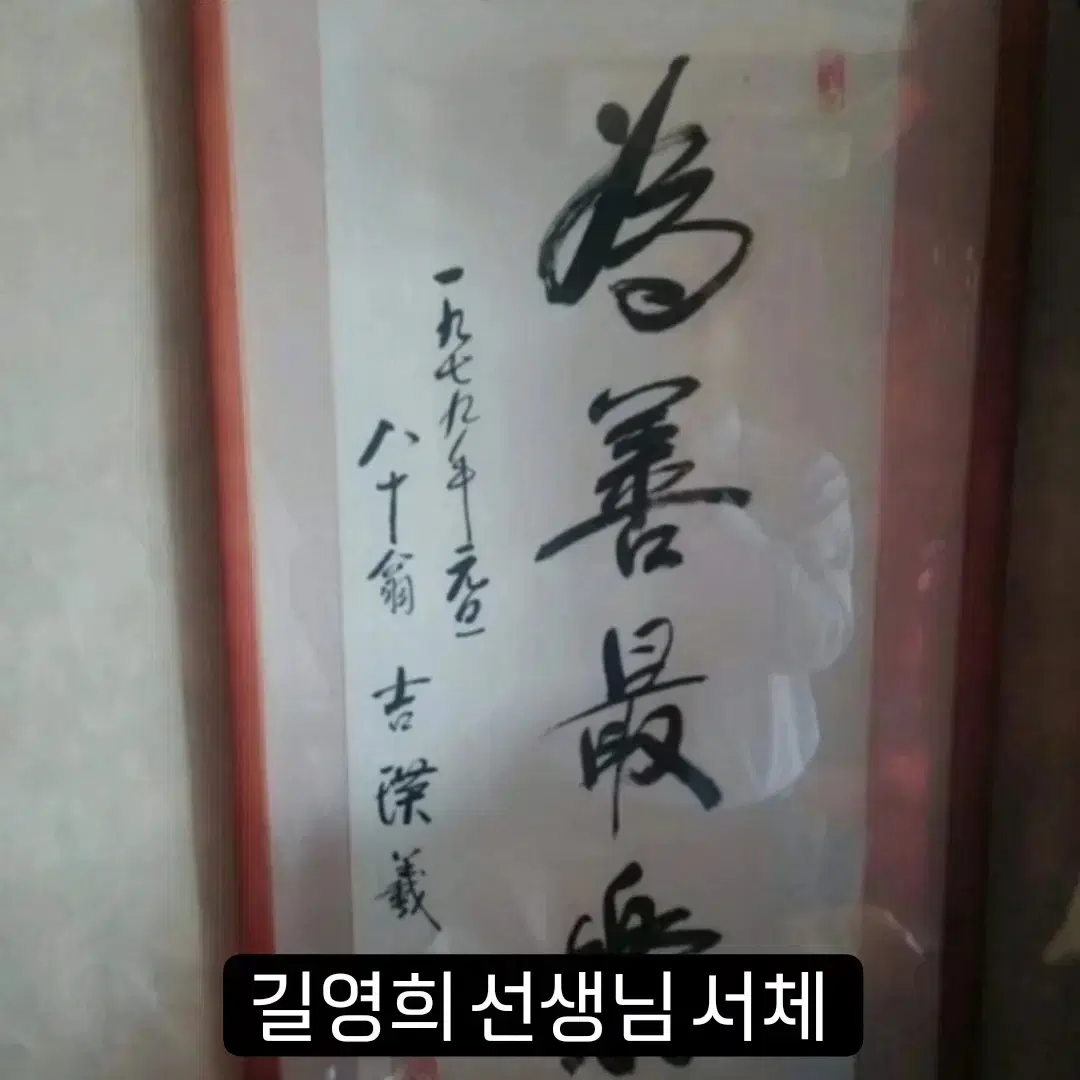 為善最樂
一九七九年元旦
八十翁 吉瑛羲
길영희 선생님 서체